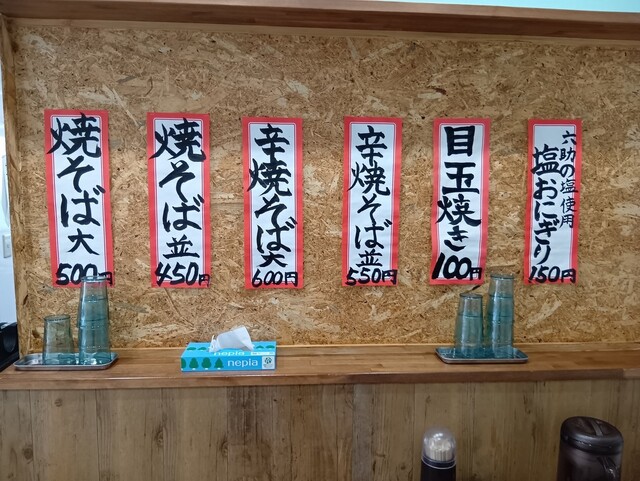 焼そば大
500円
焼そば並
450円
辛焼そば大
600円
辛焼そば並
550円
目玉焼き
100円
六助の塩使用
塩おにぎり
150円
nepia
nepia